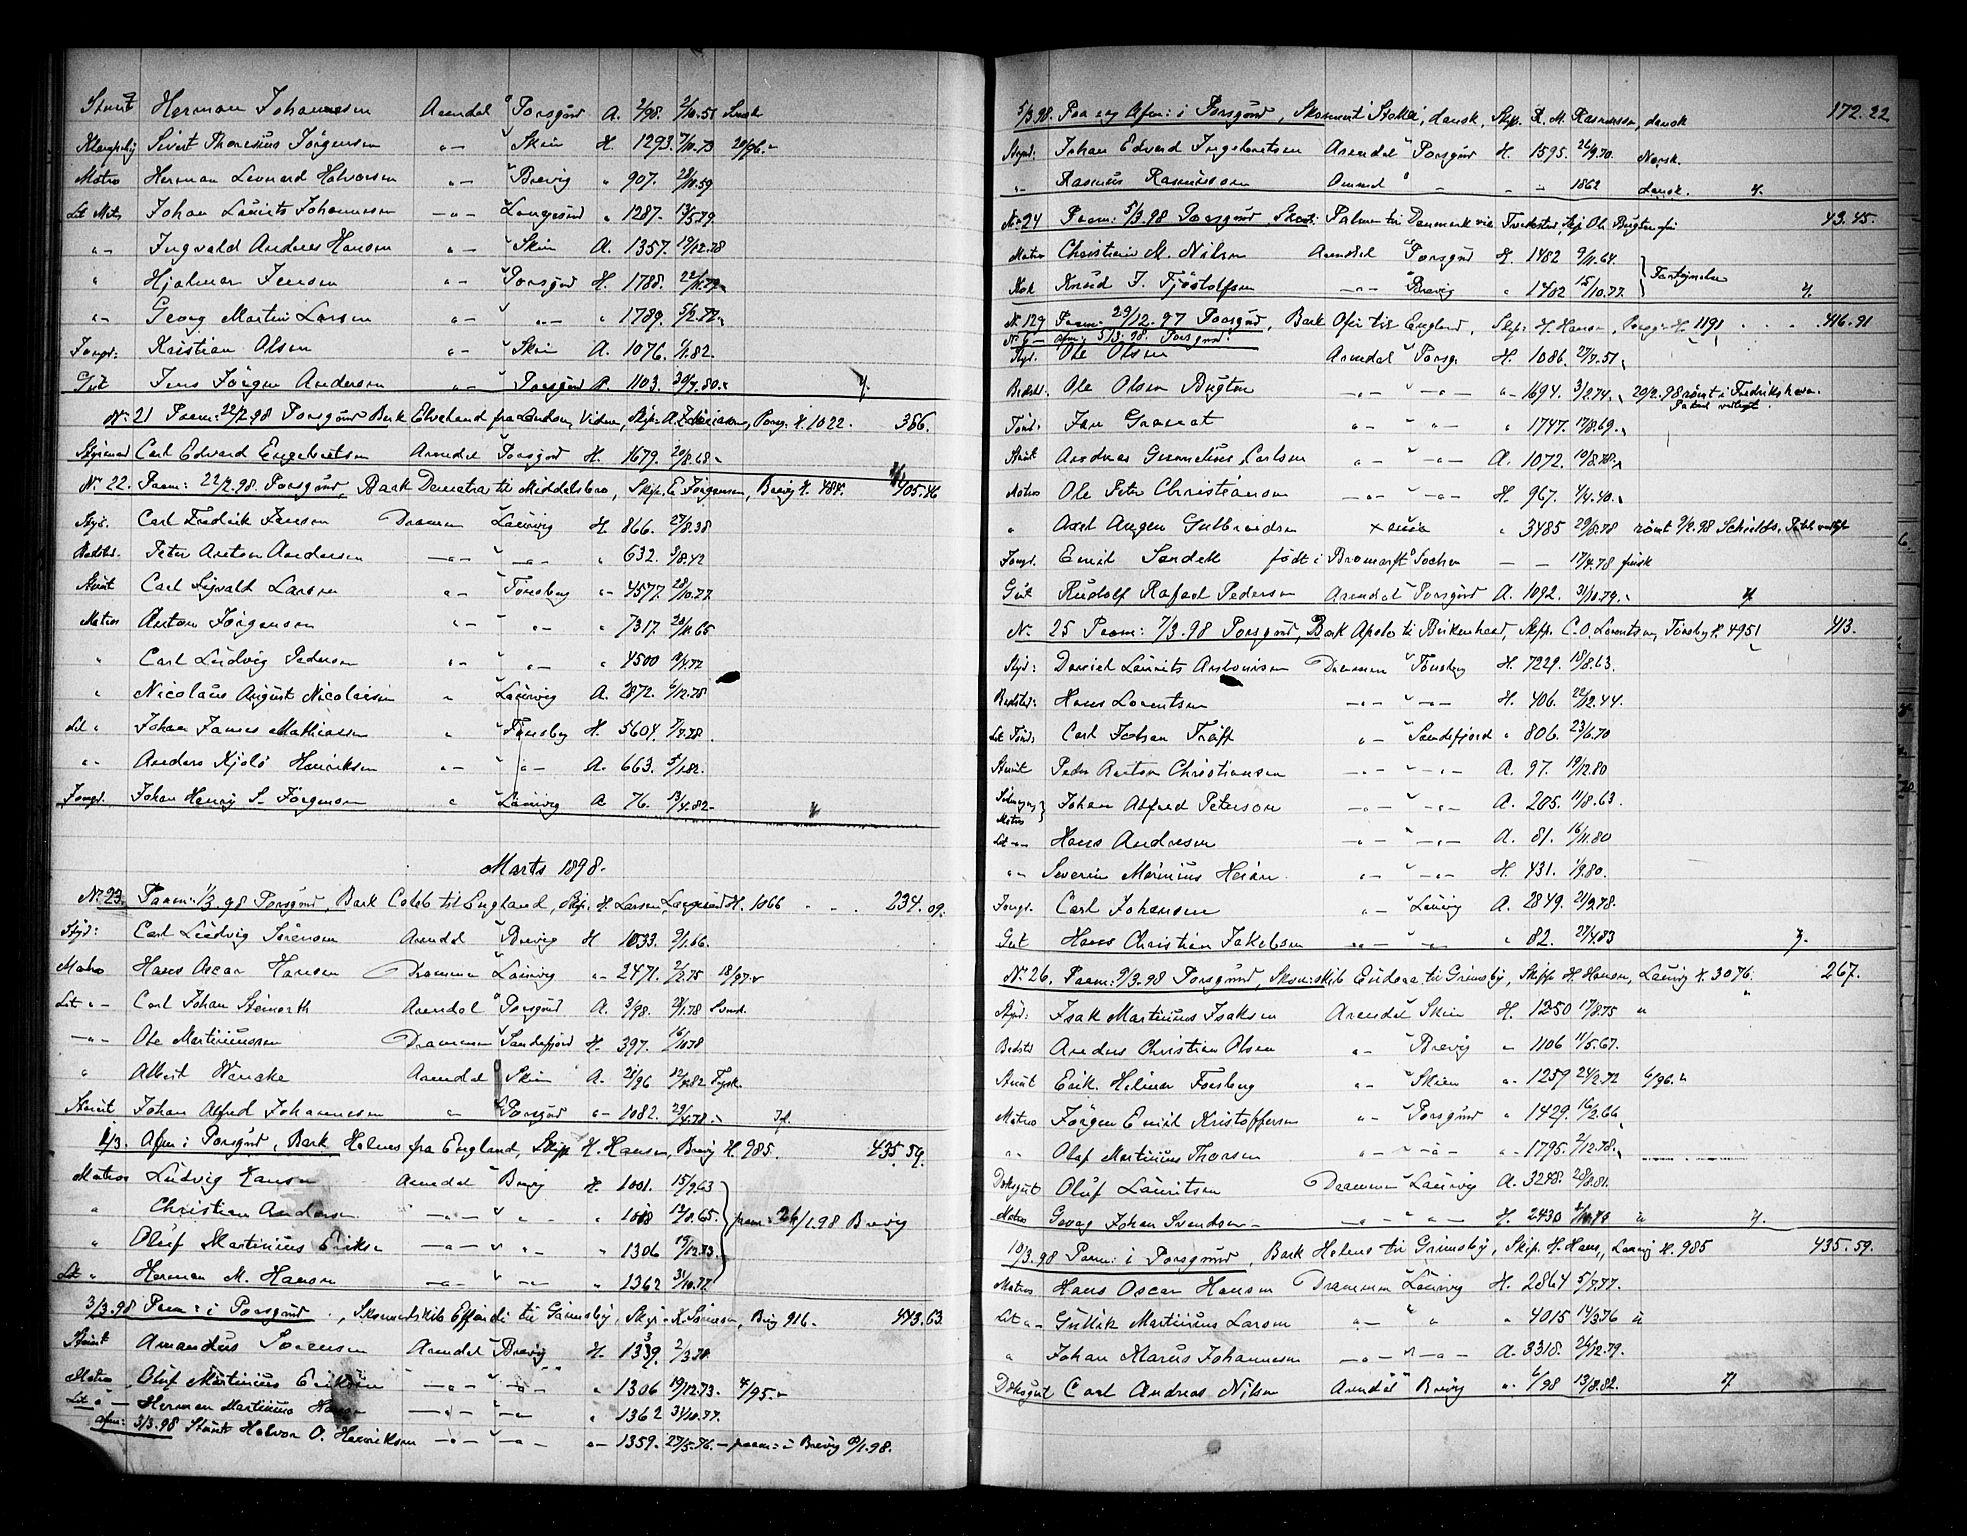 Stuert Herman Johannesen Arendal Porsgrund A. 2/98. 2/10.51
Sivert Thoresius Jörgensen " Skien H. 1293. 7/11.73 20/96.
Matros Herman Leonard Halvorsen " Brevig " 907. 28/11.59
Let Matr Johan Laurits Johannesen " Langesund " 1287. 13/5.79
" Ingvald Andreas Hansen " Skien A. 1357. 19/12.78
" Hjalmar Jensen " Porsgrund H. 1788. 22/11.79
" Georg Martin Larsen " " " 1789. 5/2.72
Jungd: Kristian Olsen " Skien A. 1076. 6/1.82.
Gut Jens Jörgen Andersen " Porsgrund A. 1103. 30/7.80.
No 21 Paam: 22/2.98 Porsgrund Bark fra London, Porsg. H. 1022. 366.
Styrmand Carl Edvard Engebretsen Arendal Porsgrund H. 1679. 20/8.68
No. 22. Paam: 22/2.98. Porsgrund, Bark Demetra til Middelsbro, Skip. E. Jörgensen, Brevig H. 488. 405.46
Styr. Carl Fredrik Jansen Drammen Laurvig H. 866. 27/8.38
Bedstd. Peter Anton Andersen " " " 632. 3/8.42
Stuert Carl Sigvald Larsen " Tönsberg " 4577. 28/10.77
Matros Anton Jörgensen " " " 7317. 28/11.65
" Carl Ludvig Pedersen " " " 4500 19/1.72
" Nicolaus August Nicolaisen " Laurvig A. 2872. 6/12.75
Let " Johan James Mathiasen " Tönsberg H. 5604. 7/7.78
" Anders Kjölö Henriksen " " A. 663. 5/1.82.
Jungd. Johan Henrij S. Jörgensen " Laurvig A 76. 13/4.82
Marts 1898.
No. 23. Paam: 1/3 98 Porsgrund, Bark Caleb til England, Skp. H. Larsen, Langesund H. 1066 234.09.
Styd: Carl Ludvig Sörensen Arendal Brevig H 1033. 9/1.66.
Matros Hans Oscar Hansen Drammen Laurvig " 2471. 2/2.75 18/97
Let " Carl Johan Steinorth Arendal Porsgrund A. 3/98. 28/1.78 Svensk.
" Ole Martiniussen Drammen Sandefjord H. 397. 16/10.78
" Albert Wancke Arendal Skien A. 21/96 Tysk.
Stuert Johan Alfred Johannesen " Porsgrund " 1082. 29/4.78
1/3. Afm: i Porsgrund, Bark Helenes fra England, Skipp H. Hansen, Brevig H. 985. 435.59.
Matros Ludvig Hansen Arendal Brevig H. 1001. 15/9.63
" Christian Andersen " " " 1018 12/8.65. paam: 26/1.98 Brevig
" Oluf Martinius Eriksen " " " 1306 19/12.73.
Let " Herman M. Hansen " " " 1362 31/10.77
3/3.98 Paam: i Porsgrund, Skonnertskib Effendi til Grimsby, Skip. K. Sörensen, Brevig 916. 443.63
Stuert Amandus Sörensen Arendal Brevig H. 1339. 2/3.78.
Matros Oluf Martinius Eriksen " " " 1306 19/12.73. 4/95.
Let " Herman Martinius Hansen " " " 1362 31/10.77.
afm: 3/3.98 Stuert Halvor O. Henriksen " " " 1359. 27/5.76. paam: i Brevig 19/1.98.
5/3.98. Paa og Afm: i Porsgrund, Skonnert dansk, Skip. R. M. Rasmussen, dansk 172.22
Styrd: Johan Edvard Ingebretsen Arendal Porsgrund H. 1595. 26/9.70. Norsk.
" Rasmus Rasmussen Ommel " " " 1862 dansk.
No 24 Paam: 5/3.98 Porsgrund, Skont: Palmen til Danmark via Fredriksstad, Skp Ole Bugten 43.45.
Matros Christian M. Nilsen Arendal Porsgrund H. 1482 9/11.64.
Kok Knud J. Fjöstolfsen " Brevig " 1402 15/10.77. Forhyrnelse
No 129 Paam: 29/12.97 Porsgrund, Bark Ofir til England, Skip: H. Hansen, Porsgr. H. 1191 416.91
No 6 - afm: 5/3.98. Porsgrund.
Styd. Ole Olsen Arendal Porsg. H. 1086. 27/7.51
Bedstd. Ole Olsen Bugten " " " 1694. 3/2.74. 20/2.98 römt i Fredrikshavn. Patent vedlagt.
Tömd: Jan Granat " " " 1747. 17/8.69.
Stuert Andreas Gunnelius Carlsen " " A. 1072. 19/8.78.
Matros Ole Peter Christiansen " " H. 967. 4/4.40.
" Axel Augen Gulbrandsen Xania " 3485 29/10.78 römt 9/2.98 Schields, Patent vedlagt
Jungd. Emil Sandell født i Bromarf Sochen " " 17/4.78 finsk
Gut Rudolf Rafael Pedersen Arendal Porsgrund A. 1092. 31/10.79.
No. 25 Paam: 7/3.98 Porsgrund, Bark Apolo til Birkenhead, Skipp. C. O. Lorentsen, Tönsbg H. 4951 413.
Styd: Daniel Laurits Antonisen Drammen Tönsberg H. 7229. 18/8.63.
Bedstd: Hans Lorentsen " " H. 406. 22/12.44.
Let Tömd: Carl Johan Träff " Sandefjord " 806. 23/6.70
Stuert Peder Anton Christiansen " " A. 97. 19/12.80
Matros Johan Alfred Peterson " " A. 205. 11/8.63.
Let " Hans Andresen " " A. 81. 16/11.80
" Severin Marinius Heian " " H. 431. 1/9.80.
Jungd. Carl Johansen " Laurvig A. 2849. 21/9.78.
Gut Hans Christian Jakobsen " " " 82. 27/4.83
No. 26. Paam: 9/3.98 Porsgrund, Skon:skib Eudora til Grimsby, Skipp H. Hansen, Laurvig H. 3076. 267.
Styrd: Isak Martinius Isaksen Arendal Skien H. 1250 17/8.75
Bedstd Anders Christian Olsen " Brevig " 1106 11/5.67.
Stuert Erik Hilmar Forsberg " Skien " 1259 24/2.72 6/96.
Matros Jörgen Emil Kristoffersen " Porsgrund " 1429. 16/2.66
" Olaf Martinius Thorsen " " " 1795. 2/12.78.
Däksgut Oluf Lauritsen Drammen Laurvig A. 3248. 28/8.81.
Matros Georg Johan Svendsen " " H. 2430
10/3.98 Paam: i Porsgrund, Bark Helenes til Grimsby, Skip. H. Hans., Laurvig H. 985 435.59.
Matros Hans Oscar Hansen Drammen Laurvig H. 2864 5/7.77.
Let " Gullik Martinius Larsen " " " 4015 14/3.76
" Johan Marius Johannesen " " A. 3318. 26/12.79.
Däksgut Carl Andreas Nilsen Arendal Brevig " 6/98 13/8.82.